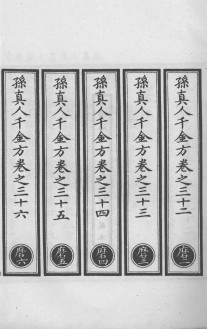 孫真人千金方卷之三十二
磨二
孫真人千金方卷之三十三
磨三
孫真人千金方卷之三十四
磨四
孫真人千金方卷之三十五
磨五
孫真人千金方卷之三十六
磨六